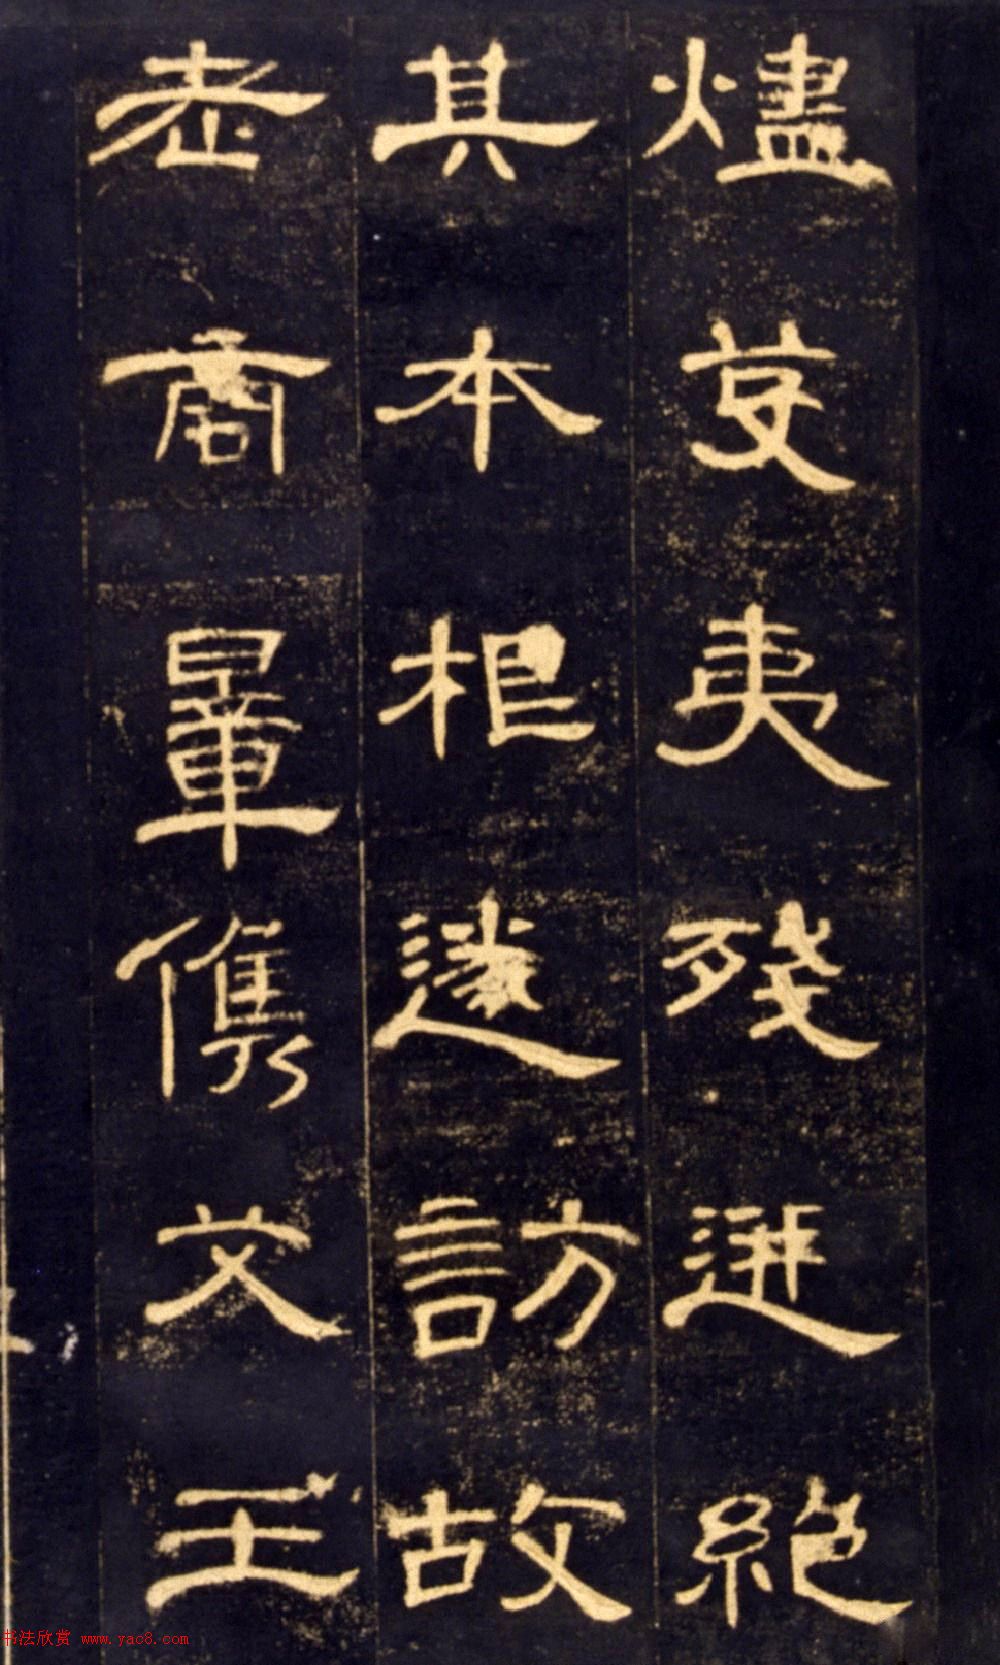 燼芟夷殘迸絕
其本根遂訪故
老商量儁文王
书法欣赏 www.yac8.com